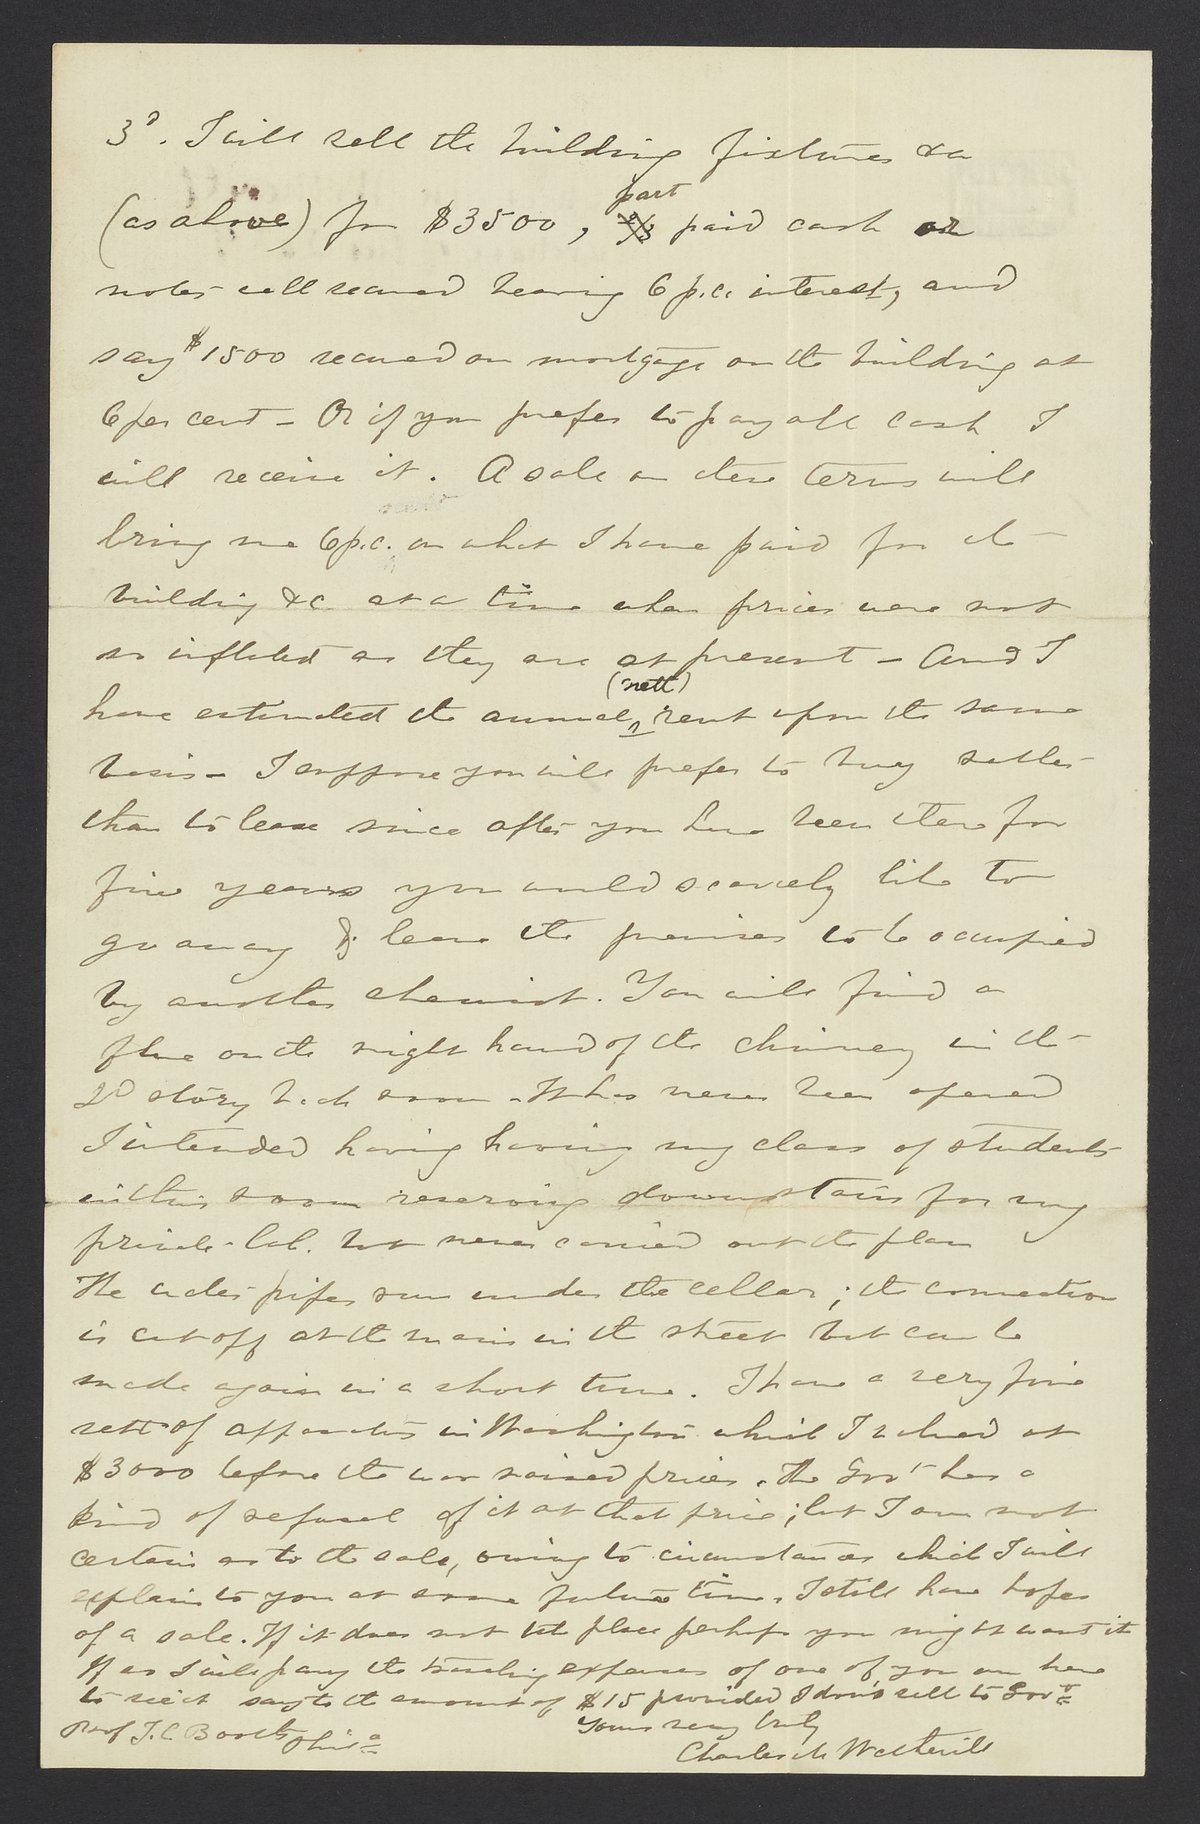 3d. I will sell the building fixtures &c
(as above) for $3500, part paid cash or
notes well secured bearing 6 p.c. interest, and
say $1500 secured on mortgage on the building at
6 per cent - Or if you prefer to pay all cash I
will receive it. A sale on these terms will
bring me 6 p.c. on what I have paid for the
building &c at a time when prices were not
so inflated as they are at present - And I
have estimated the annual (nett) rent upon the same
basis - I suppose you will prefer to buy rather
than to lease since after you have been there for
five years you would scarcely like to
go away & leave the premises to be occupied
by another chemist. You will find a
flue on the right hand of the chimney in the
2d story back room - It has never been opened
I intended having having my class of students
in this room reserving downstairs for my
private lab. but never carried out the plan
The water pipes run under the cellar; the connection
is cut off at the main in the street but can be
made again in a short time. I have a very fine
sett of apparatus in Washington which I valued at
$3000 before the war raised prices. The Govt has a
kind of refusal of it at that price; but I am not
certain as to the sale, owing to circumstances which I will
explain to you at some future time. I still have hopes
of a sale. If it does not take place perhaps you might want it
If so I will pay the traveling expenses of one of you on here
to see it say to the amount of $15 provided I don't sell to Govt
Yours very truly
Prof J. C. Booth Phila
Charles M Wetherill